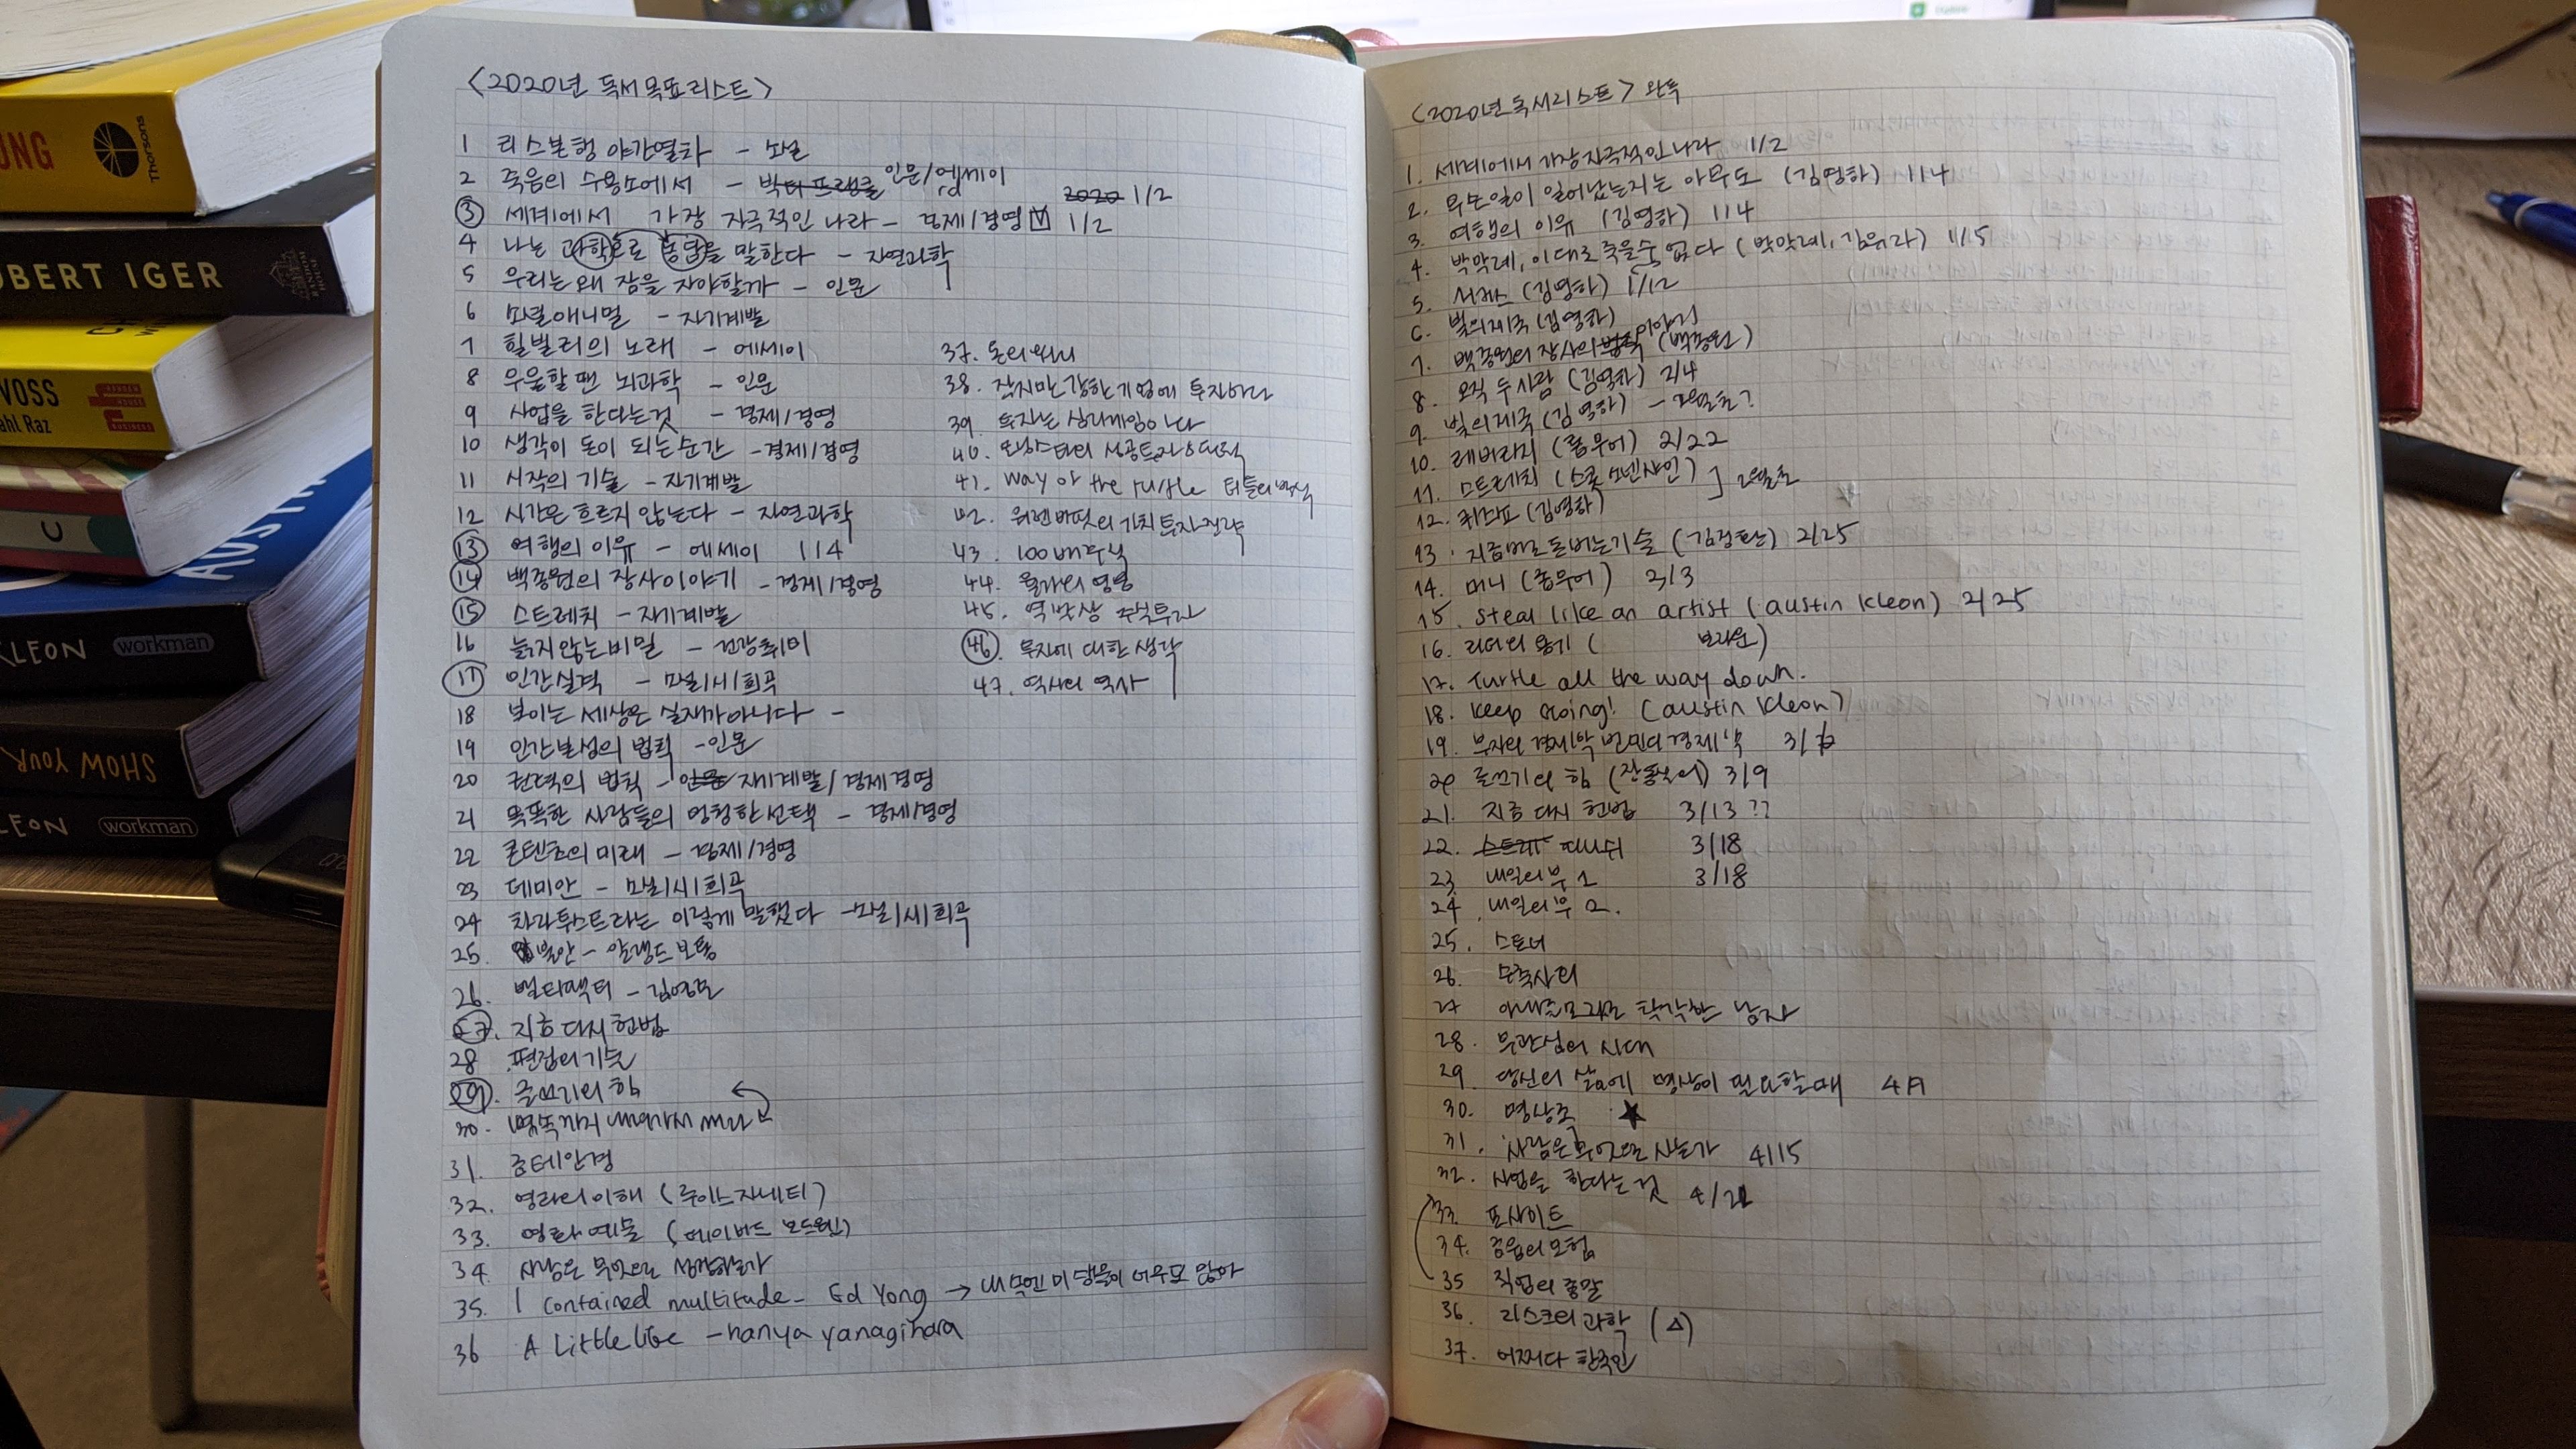 UNG
Thorsons
OBERT IGER
VOSS
ahl Raz
AUSTI
KLEON workman
SHOW YOUR
LEON workman
<2020년 독서목표리스트>
1 리스본행 야간열차 - 소설
2 죽음의 수용소에서 - 인문/에세이
2020 1/2
③ 세계에서 가장 자극적인 나라 - 경제/경영 1/2
4 나는 과학으로 통념을 말한다 - 자연과학
5 우리는 왜 잠을 자야할까 - 인문
6 소셜애니멀 - 자기계발
7 힐빌리의 노래 - 에세이
8 우울할 땐 뇌과학 - 인문
9 사업을 한다는것 - 경제/경영
10 생각이 돈이 되는순간 - 경제/경영
11 시작의 기술 - 자기계발
12 시간은 흐르지 않는다 - 자연과학
⑬ 여행의 이유 - 에세이 1/4
⑭ 백종원의 장사이야기 - 경제/경영
⑮ 스트레치 - 자기계발
16 늙지않는비밀 - 건강취미
⑰ 인간실격 - 소설/시/희곡
18 보이는 세상은 실재가아니다 -
19 인간본성의 법칙 - 인문
20 권력의 법칙 - 인문 자기계발/경제경영
21 똑똑한 사람들의 멍청한선택 - 경제/경영
22 콘텐츠의 미래 - 경제/경영
23 데미안 - 소설/시/희곡
24 차라투스트라는 이렇게 말했다 - 소설/시/희곡
25. 불안 - 알랭드보통
26. 멀티팩터 - 김영준
27. 지금다시헌법
28 편집의기술
29. 글쓰기의 힘
30.
31. 금테안경
32. 영화의이해 (루이스자네티)
33. 영화예술 (데이비드 보드웰)
34. 사람은 무엇으로 성장하는가
35. I contained multitude - Ed Yong → 내속엔 미생물이 너무도 많아
36 A Little life - hanya yanagihara
37. 돈의역사
38. 작지만강한기업에 투자하라
39. 투자는 심리게임이다
40.
41. way of the turtle 터틀의방식
42. 워렌버핏의 가치투자전략
43. 100배주식
44. 몰락의 영웅
45. 역발상 주식투자
㊻. 투자에 대한 생각
47. 역사의 역사
<2020년 독서리스트> 완독
1. 세계에서 가장자극적인나라 1/2
2. 무슨일이 일어났는지는 아무도 (김영하) 1/4
3. 여행의 이유 (김영하) 1/4
4. 박막례, 이대로죽을순 없다 (박막례, 김유라) 1/5
5. 서커스 (김영하) 1/12
6. 빛의제국 (김영하)
7. 백종원의 장사이야기 (백종원)
8. 오직 두사람 (김영하) 2/4
9. 빛의제국 (김영하) - 2월초?
10. 레버리지 (롭무어) 2/22
11. 스트레치 (스콧 소넨샤인) ] 2월초
12. 퀴즈쇼 (김영하)
13. 지금바로 돈버는기술 (김정환) 2/25
14. 머니 (롭무어) 3/3
15. steal like an artist (austin kleon) 2/25
16. 리더의 용기 ( 브라운)
17. Turtle all the way down.
18. keep going! (austin kleon)
19. 부자의 경제학 빈민의 경제학 3/
20 글쓰기의 힘 (장동석외) 3/9
21. 지금 다시 헌법 3/13 ??
22. 3/18
23. 내일의부 1 3/18
24. 내일의부 2.
25. 스토너
26. 모죽사의
27 아내를모자로 착각한 남자
28. 무관심의 시대
29. 당신의 삶에 명상이 필요할때 4月
30. 명상록 ★
31. 사람은무엇으로 사는가 4/15
32. 사업을 한다는것 4/22
33. 포사이트
34. 좁음의모험
35 직업의 종말
36. 리스크의과학 (△)
37. 어쩌다 한국인